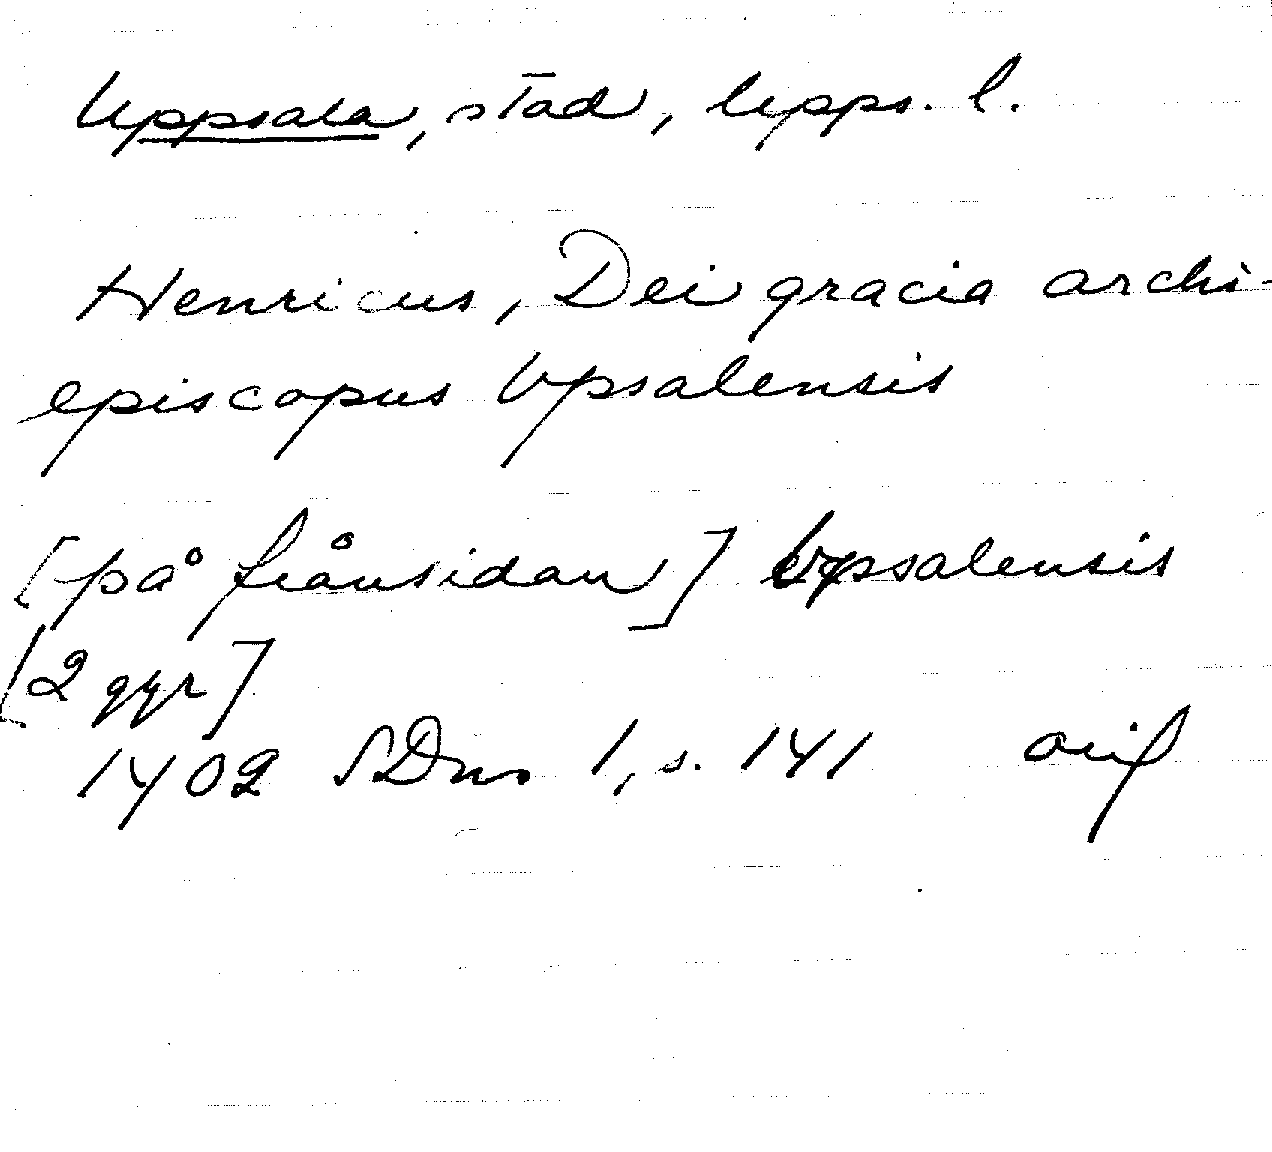 Uppsala, stad, Upps. l.
Henricus, Dei gracia archi-
episcopus Vpsalensis
[på frånsidan] Vpsalensis
[2 ggr]
1402 SDns 1, s. 141 orig